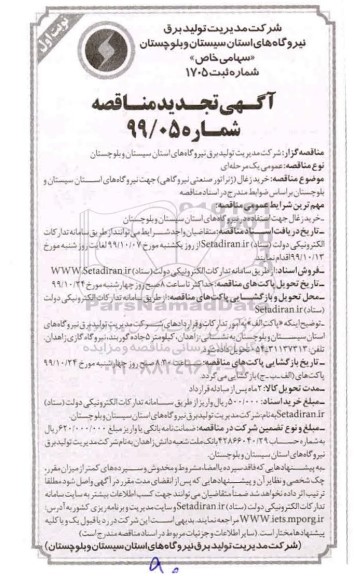 نوبت اول
شرکت مدیریت تولید برق
نیروگاه های استان سیستان و بلوچستان
«سهامی خاص»
شماره ثبت ۱۷۰۵
آگهی تجدید مناقصه
شماره ۹۹/۰۵
مناقصه گزار: شرکت مدیریت تولید برق نیروگاه های استان سیستان و بلوچستان
نوع مناقصه: عمومی یک مرحله ای
موضوع مناقصه: خرید زغال (ژنراتور صنعتی نیروگاهی) جهت نیروگاه های استان سیستان و
بلوچستان بر اساس ضوابط مندرج در اسناد مناقصه
مهم ترین شرایط عمومی مناقصه:
ـ خرید زغال جهت استفاده در نیروگاه های استان سیستان و بلوچستان
ـ تاریخ دریافت اسناد مناقصه: متقاضیان واجد شرایط می توانند از طریق سامانه تدارکات
الکترونیکی دولت (ستاد) Setadiran.ir از روز یکشنبه مورخ ۹۹/۱۰/۰۷ لغایت روز شنبه مورخ
۹۹/۱۰/۱۳ اقدام نمایند.
ـ فروش اسناد: از طریق سامانه تدارکات الکترونیکی دولت (ستاد) WWW.Setadiran.ir
ـ تاریخ تحویل پاکت های مناقصه: حداکثر تا ساعت ۸ صبح روز چهارشنبه مورخ ۹۹/۱۰/۲۴
ـ محل تحویل و بازگشایی پاکت های مناقصه: از طریق سامانه تدارکات الکترونیکی دولت
(ستاد) Setadiran.ir
ـ توضیح اینکه «پاکت الف» به امور تدارکات و قراردادهای شرکت مدیریت تولید برق نیروگاه های
استان سیستان و بلوچستان به نشانی: زاهدان، کیلومتر ۵ جاده گوربند، نیروگاه گازی زاهدان،
تلفن: ۰۵۴۳۱۱۳۷۳۱۳ تحویل داده شود.
ـ تاریخ بازگشایی پاکت های مناقصه: ساعت ۸:۳۰ صبح روز چهارشنبه مورخ ۹۹/۱۰/۲۴
پاکت های (الف-ب-ج) بازگشایی می گردد.
ـ مدت تحویل کالا: ۲ ماه پس از مبادله قرارداد
ـ مبلغ خرید اسناد: ۵۰۰/۰۰۰ ریال واریز از طریق سامانه تدارکات الکترونیکی دولت (ستاد)
Setadiran.ir به نام شرکت مدیریت تولید برق نیروگاه های استان سیستان و بلوچستان.
ـ مبلغ و نوع تضمین شرکت در مناقصه: ضمانت نامه بانکی یا واریز مبلغ ۶۲۰/۰۰۰/۰۰۰ ریال
به شماره حساب ۴۲۸۶۶۰۴۰/۲۹ بانک ملت شعبه دانش زاهدان به نام شرکت مدیریت تولید برق
نیروگاه های استان سیستان و بلوچستان.
به پیشنهادهایی که فاقد سپرده یا امضاء، مشروط و مخدوش و سپرده های کمتر از میزان مقرر،
چک شخصی و نظایر آن و پیشنهادهایی که پس از انقضای مدت مقرر در آگهی واصل شود مطلقا
ترتیب اثر داده نخواهد شد ضمنا متقاضیان می توانند جهت کسب اطلاعات بیشتر به سایت سامانه
تدارکات الکترونیکی دولت (ستاد) Setadiran.ir و سایت مدیریت و برنامه ریزی کشور به آدرس:
WWW.iets.mporg.ir مراجعه نمایند. بدیهی است این شرکت در رد یا قبول یک و یا کلیه
پیشنهادها مختار است. (سایر اطلاعات و جزئیات مربوط در اسناد مناقصه مندرج است)
(شرکت مدیریت تولید برق نیروگاه های استان سیستان و بلوچستان)